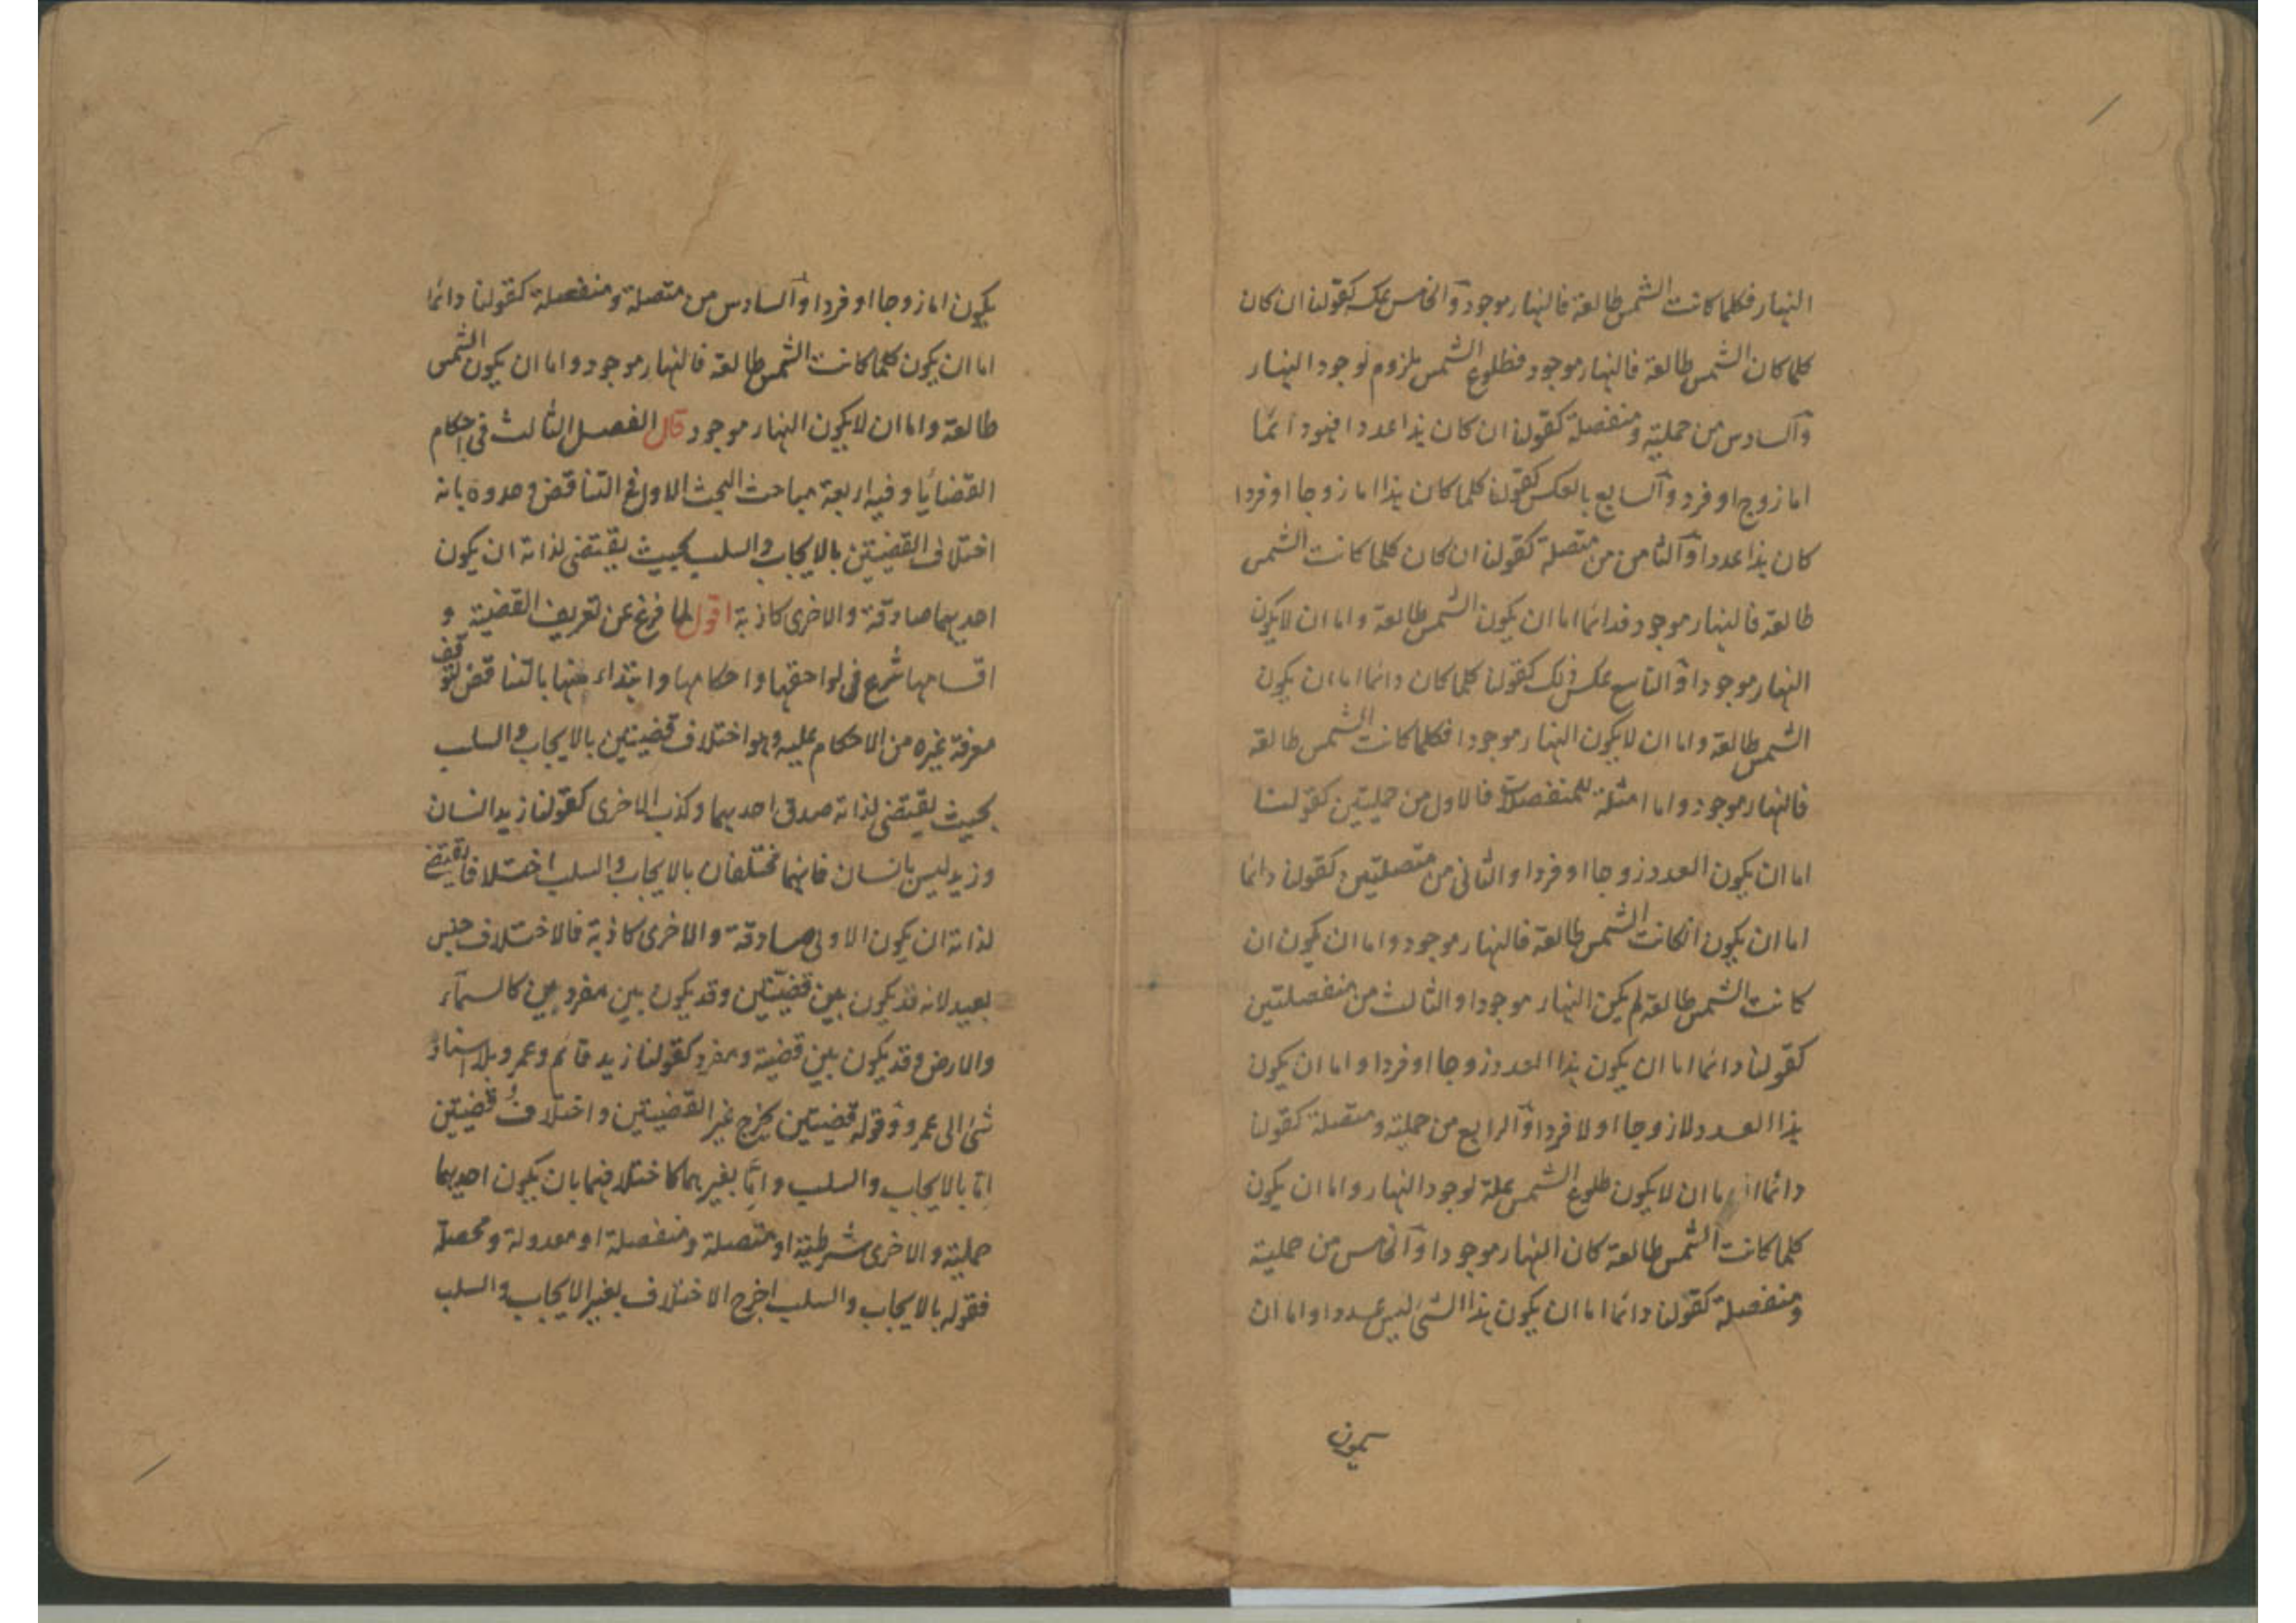 النهار فكلما كانت الشمس طالعة فالنهار موجود والخامس عكسه كقولنا ان كان
كلما كان الشمس طالعة فالنهار موجود فطلوع الشمس ملزوم لوجود النهار
والسادس من حملية ومنفصلة كقولنا ان كان هذا عددا فهو دائما
اما زوج او فرد والسابع بالعكس كقولنا كلما كان هذا اما زوجا او فردا
كان هذا عددا والثامن من متصلة كقولنا ان كان كلما كانت الشمس
طالعة فالنهار موجود فدائما اما ان يكون الشمس طالعة واما ان لا يكون
النهار موجودا والتاسع عكس ذلك كقولنا كلما كان دائما اما ان يكون
الشمس طالعة واما ان لا يكون النهار موجودا فكلما كانت الشمس طالعة
فالنهار موجود واما امثلة المنفصلات فالاول من حمليتين كقولنا
اما ان يكون العدد زوجا او فردا والثاني من متصلتين كقولنا دائما
اما ان يكون انكانت الشمس طالعة فالنهار موجود واما ان يكون ان
كانت الشمس طالعة لم يكن النهار موجودا والثالث من منفصلتين
كقولنا دائما اما ان يكون هذا العدد زوجا او فردا واما ان يكون
هذا العدد لا زوجا او لا فردا والرابع من حملية ومتصلة كقولنا
دائما اما ان لا يكون طلوع الشمس علة لوجود النهار واما ان يكون
كلما كانت الشمس طالعة كان النهار موجودا والخامس من حملية
ومنفصلة كقولنا دائما اما ان يكون هذا الشئ ليس عددا واما ان
يكون اما زوجا او فردا والسادس من متصلة ومنفصلة كقولنا دائما
اما ان يكون كلما كانت الشمس طالعة فالنهار موجود واما ان يكون الشمس
طالعة واما ان لا يكون النهار موجود قال الفصل الثالث في احكام
القضايا وفيه اربعة مباحث البحث الاول في التناقض وحدوه بانه
اختلاف القضيتين بالايجاب والسلب بحيث يقتضى لذاته ان يكون
احديهما صادقة والاخرى كاذبة اقول لما فرغ عن تعريف القضية و
اقسامها شرع في لواحقها واحكامها وابتداء منها بالتناقض لتوقف
معرفة غيره من الاحكام عليه وهو اختلاف قضيتين بالايجاب والسلب
بحيث يقتضى لذاته صدق احديهما وكذب الاخرى كقولنا زيد انسان
وزيد ليس بانسان فانهما مختلفان بالايجاب والسلب اختلافا يقتضى
لذاته ان يكون الاولى صادقة والاخرى كاذبة فالاختلاف جنس
بعيد لانه قد يكون بين قضيتين وقد يكون بين مفردين كالسمآء
والارض وقد يكون بين قضية ومفرد كقولنا زيد قائم وعمرو بلا اسناد
شئ الى عمرو وقوله قضيتين يخرج غير القضيتين واختلاف قضيتين
اما بالايجاب والسلب واما بغيرهما كاختلافهما بان يكون احديهما
حملية والاخرى شرطية او متصلة ومنفصلة او معدولة ومحصلة
فقوله بالايجاب والسلب اخرج الاختلاف بغير الايجاب والسلب